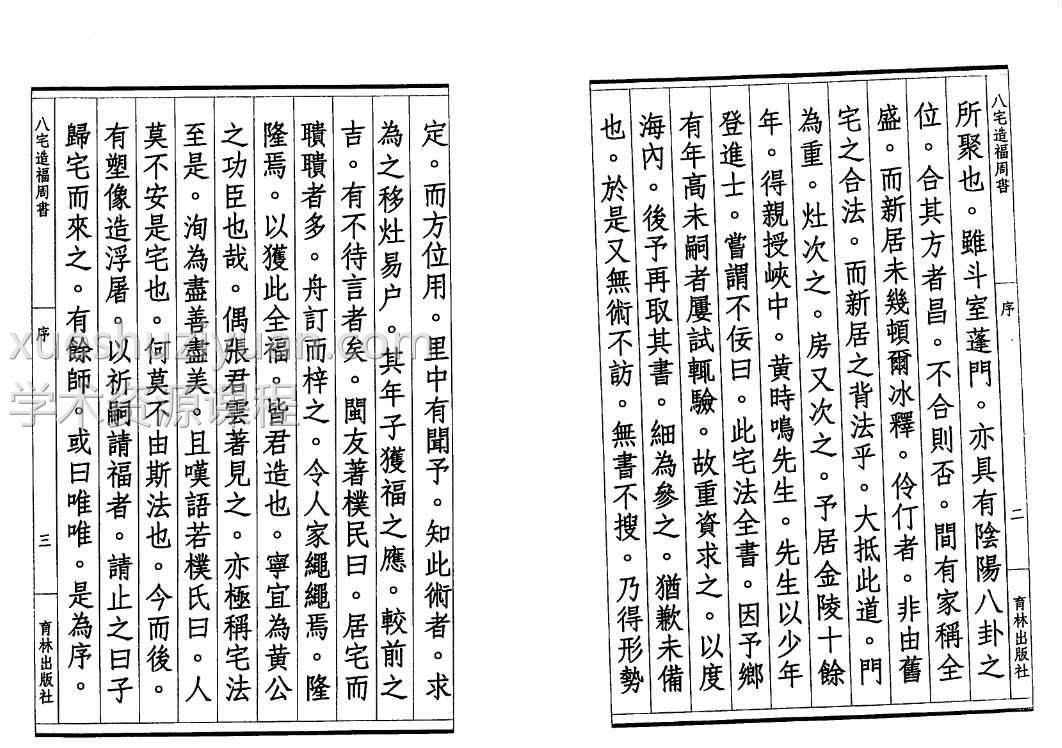 八宅造福周書
序
二
育林出版社
所聚也。雖斗室蓬門。亦具有陰陽八卦之
位。合其方者昌。不合則否。間有家稱全
盛。而新居未幾頓爾冰釋。伶仃者。非由舊
宅之合法。而新居之背法乎。大抵此道。門
為重。灶次之。房又次之。予居金陵十餘
年。得親授峽中。黄時鳴先生。先生以少年
登進士。嘗謂不佞曰。此宅法全書。因予鄉
有年高未嗣者屢試輒驗。故重資求之。以度
海內。後予再取其書。細為參之。猶歉未備
也。於是又無術不訪。無書不搜。乃得形勢
定。而方位用。里中有聞予。知此術者。求
為之移灶易户。其年子獲福之應。較前之
吉。有不待言者矣。閩友著樸民曰。居宅而
聵聵者多。舟訂而梓之。令人家繩繩焉。隆
隆焉。以獲此全福。皆君造也。寧宜為黄公
之功臣也哉。偶張君雲著見之。亦極稱宅法
至是。洵為盡善盡美。且嘆語若樸氏曰。人
莫不安是宅也。何莫不由斯法也。今而後。
有塑像造浮屠。以祈嗣請福者。請止之曰子
歸宅而來之。有餘師。或曰唯唯。是為序。
八宅造福周書
序
三
育林出版社
xueshuziyuan.com
学术资源课程